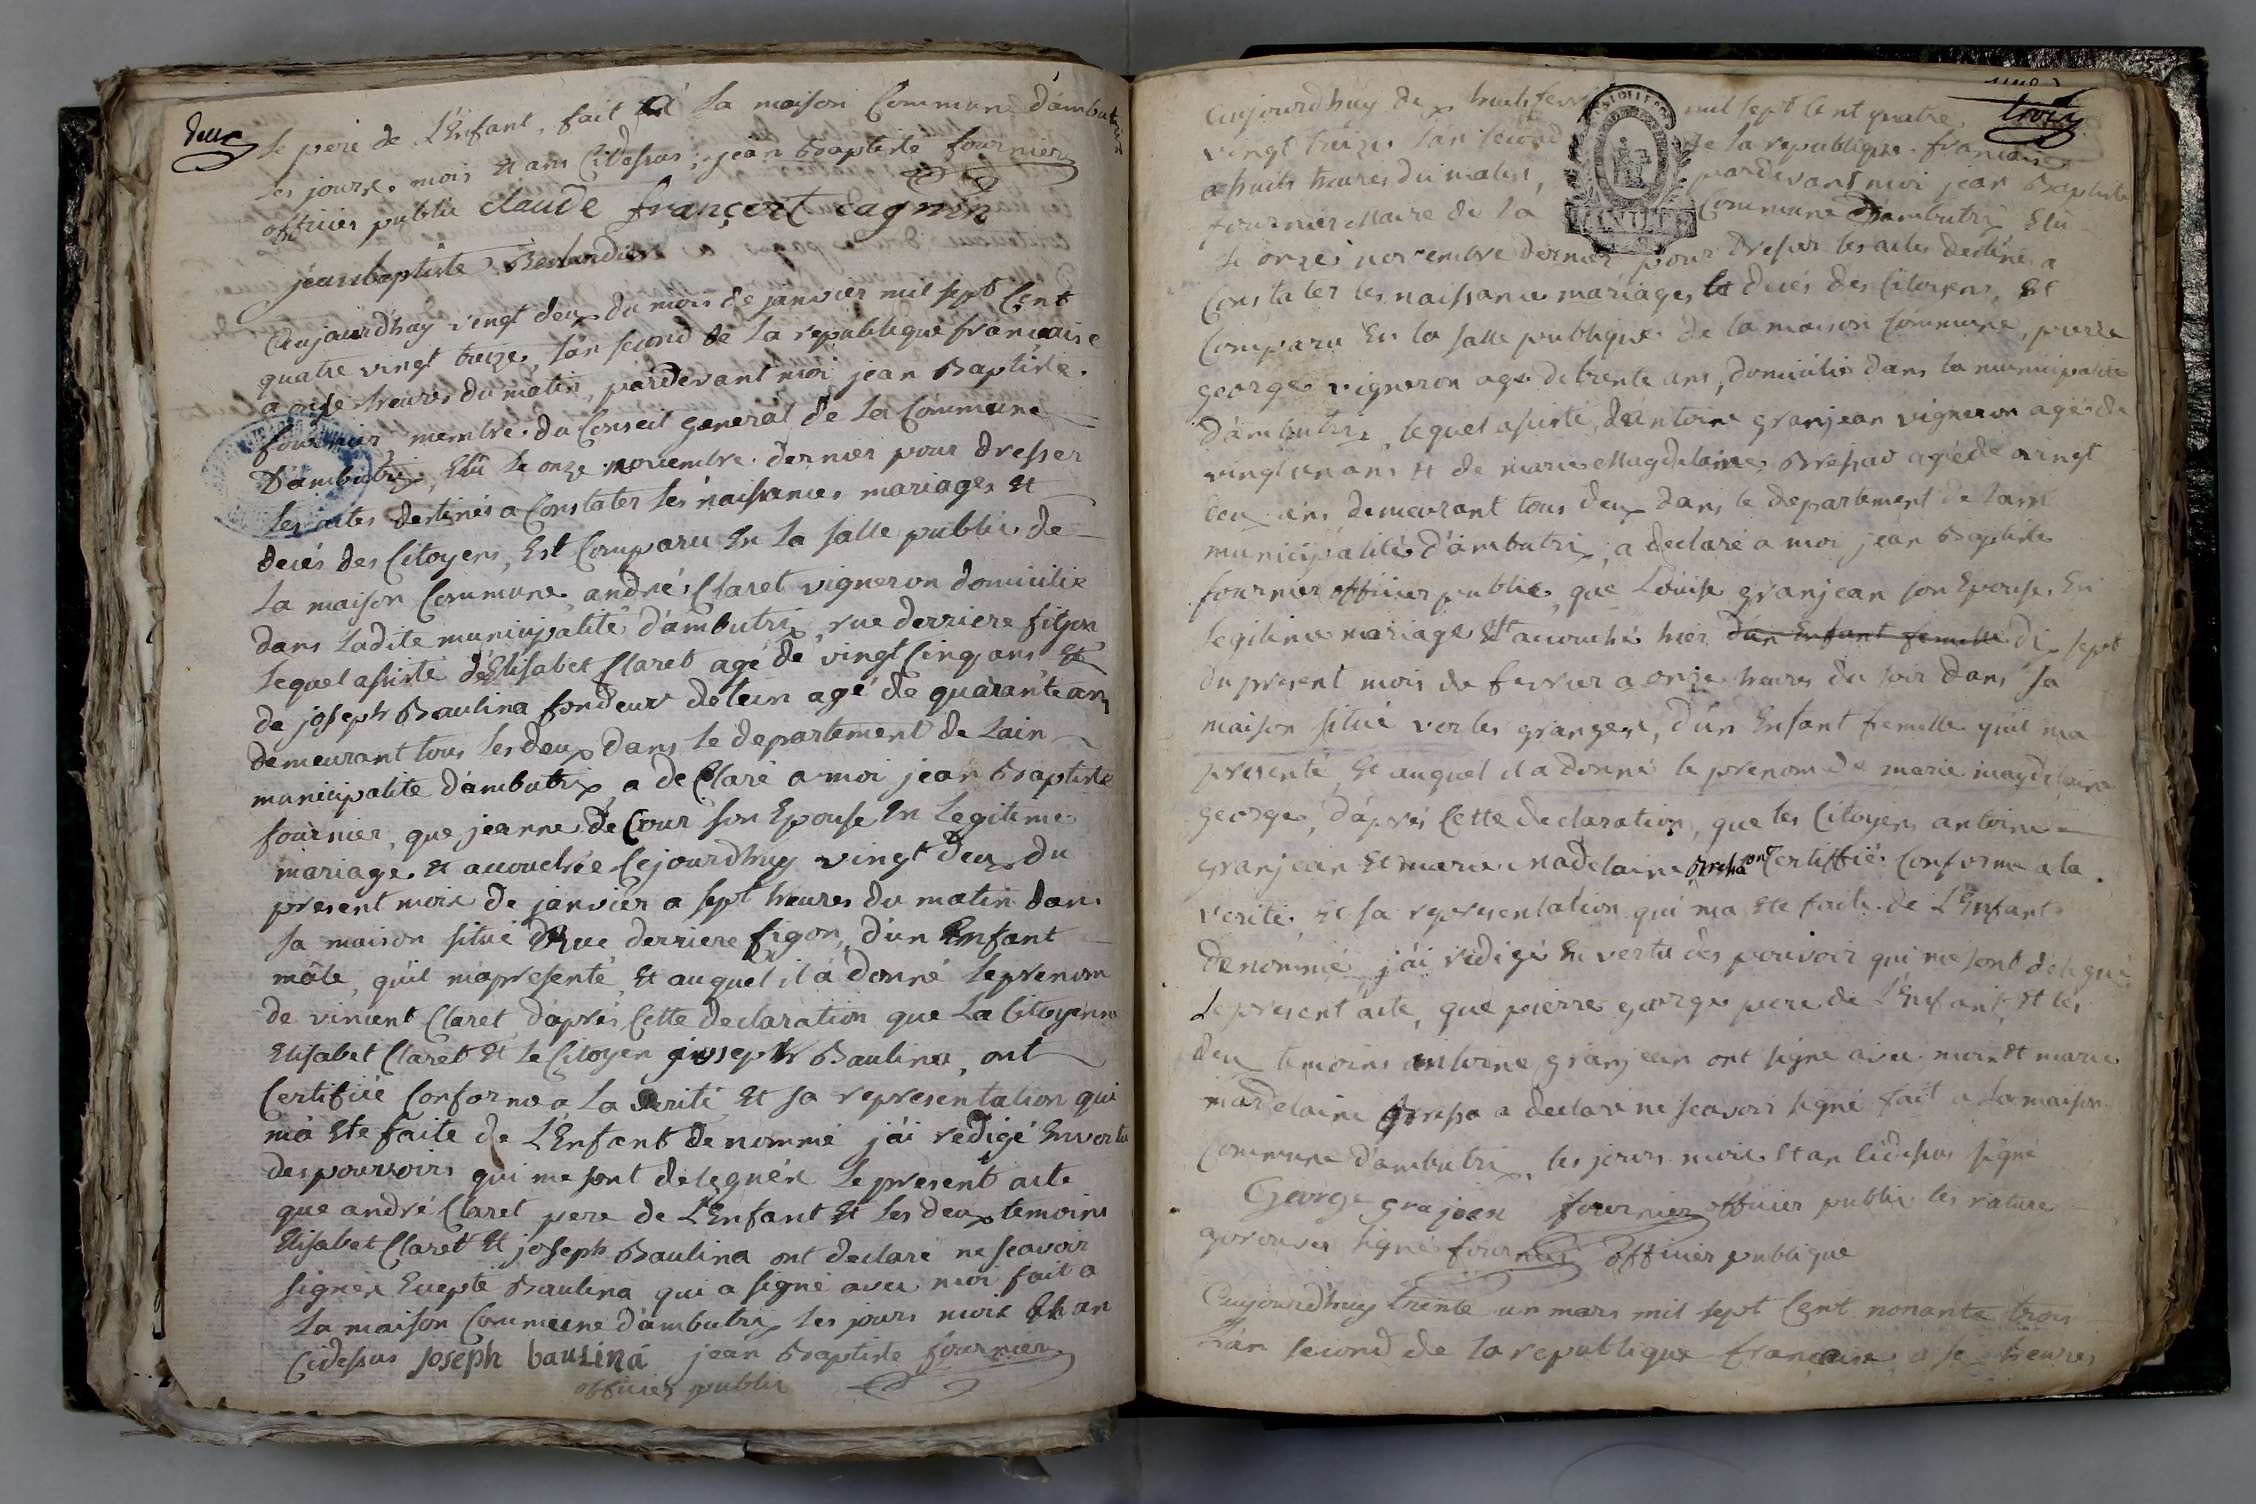 deux
le pere de L'Enfant, fait a La maison Commune d'ambutrix
les jours, mois et ans Cidessus, jean Baptiste fournier
officier public claude françoit cagnin
jeanbaptiste Berlandier
Aujaurd'huy vingt deux du mois de janvier mil sept Cent
quatre vingt treize, L'an second de La republique francaise
a onze heures du matin, pardevant moi jean Baptiste
fournier, membre du Conseil General de La Commune
D'ambutrix, Elû le onze novembre dernier pour dresser
les actes destinés a Constater les naissances mariages et
decés des Citoyens, Est Comparu En La salle public de
La maison Commune, andré Claret vigneron domicilie
dans Ladite municipalité d'ambutrix, rue derriere figon
lequel assisté d'Elisabet Claret agé de vingt Cinq ans Et
de joseph Baulina fondeur detein agé de quarante ans
demeurant tous les deux dans le departement de Lain
municipalité d'ambutrix, a declaré a moi jean Baptiste
fournier, que jeanne de Cour son Epouse En Legitime
mariage, et accouchée Cejourdhuy vingt deux du
present mois de janvier a sept heures du matin dans
sa maison situé Rue derriere figon, d'un Enfant
mâle, qu'il m'apresenté, et auquel il a donné le prenom
de vincent Claret d'aprés Cette declaration que La Citoyenne
Elisabet Claret Et le Citoyen joseph Baulina, ont
Certifiié Conforme a La verité, Et sa representation qui
m'a Ete faite de L'Enfant denommé j'ai redigé En vertu
des pouvoirs qui me sont delegués le present acte
que andré Claret pere de L'Enfant Et les deux temoins
Elisabet Claret Et joseph Baulina ont declaré ne scavoir
signer Excepté Baulina qui a signé avec moi fait a
La maison Commune d'ambutrix les jours mois Et an
Cidessus joseph baulina jean Baptiste fournier
officier public
trois
Aujourdhuy dix huit mil sept Cent quatre
vingt treize L'an second de La republique francaise
a huit heures du matin, pardevant moi jean Baptiste
fournier Maire de La Commune D'ambutrix, Elû
le onze novembre dernier pour dresser les actes destinés a
Constater les naissance mariages et decés des Citoyens, Et
Comparu En La salle publique de la maison Commune, pierre
george vigneron age de trente ans, domicilié dans la municipalité
d'ambutrix, lequel assisté d'antoine granjean vigneron agé de
vingt un ans et de marie Magdelaine Bressad agéé de vingt
deux ans demeurant tous deux dans le departement de Lain
municipalité d'ambutrix, a declaré a moi jean Baptiste
fournier officier public, que Louise granjean son Epouse En
legitime mariage Et accouché hier d'un Enfant femelle dix sept
du present mois de fevrier a onze heures du soir dans sa
maison situé ver les granges, d'un Enfant femelle quil ma
presenté, Et auquel il a donné le prenom de marie magdelaine
george, d'aprés Cette declaration, que les Citoyens antoine
granjean Et marie Madelaine Bressa ont Certiffié Conforme a la
verité, Et sa representation qui m'a Ete faite de L'Enfant
denommé, j'ai redigé En vertu des pouvoir qui me sont delegué
Le present acte, que pierre george pere de L'Enfant, Et les
deux temoins antoine granjean ont signé avec moi Et marie
madelaine Bressa a declaré ne scavoir signé fait a La maison
Commune d'ambutrix, les jours mois Et an Cidessus signé
George grajean fournier officier public les rature
aprouver signé fournier officier publique
Aujourd'huy trente un mars mil sept Cent nonante trois
L'an second de La republique francaise a heures